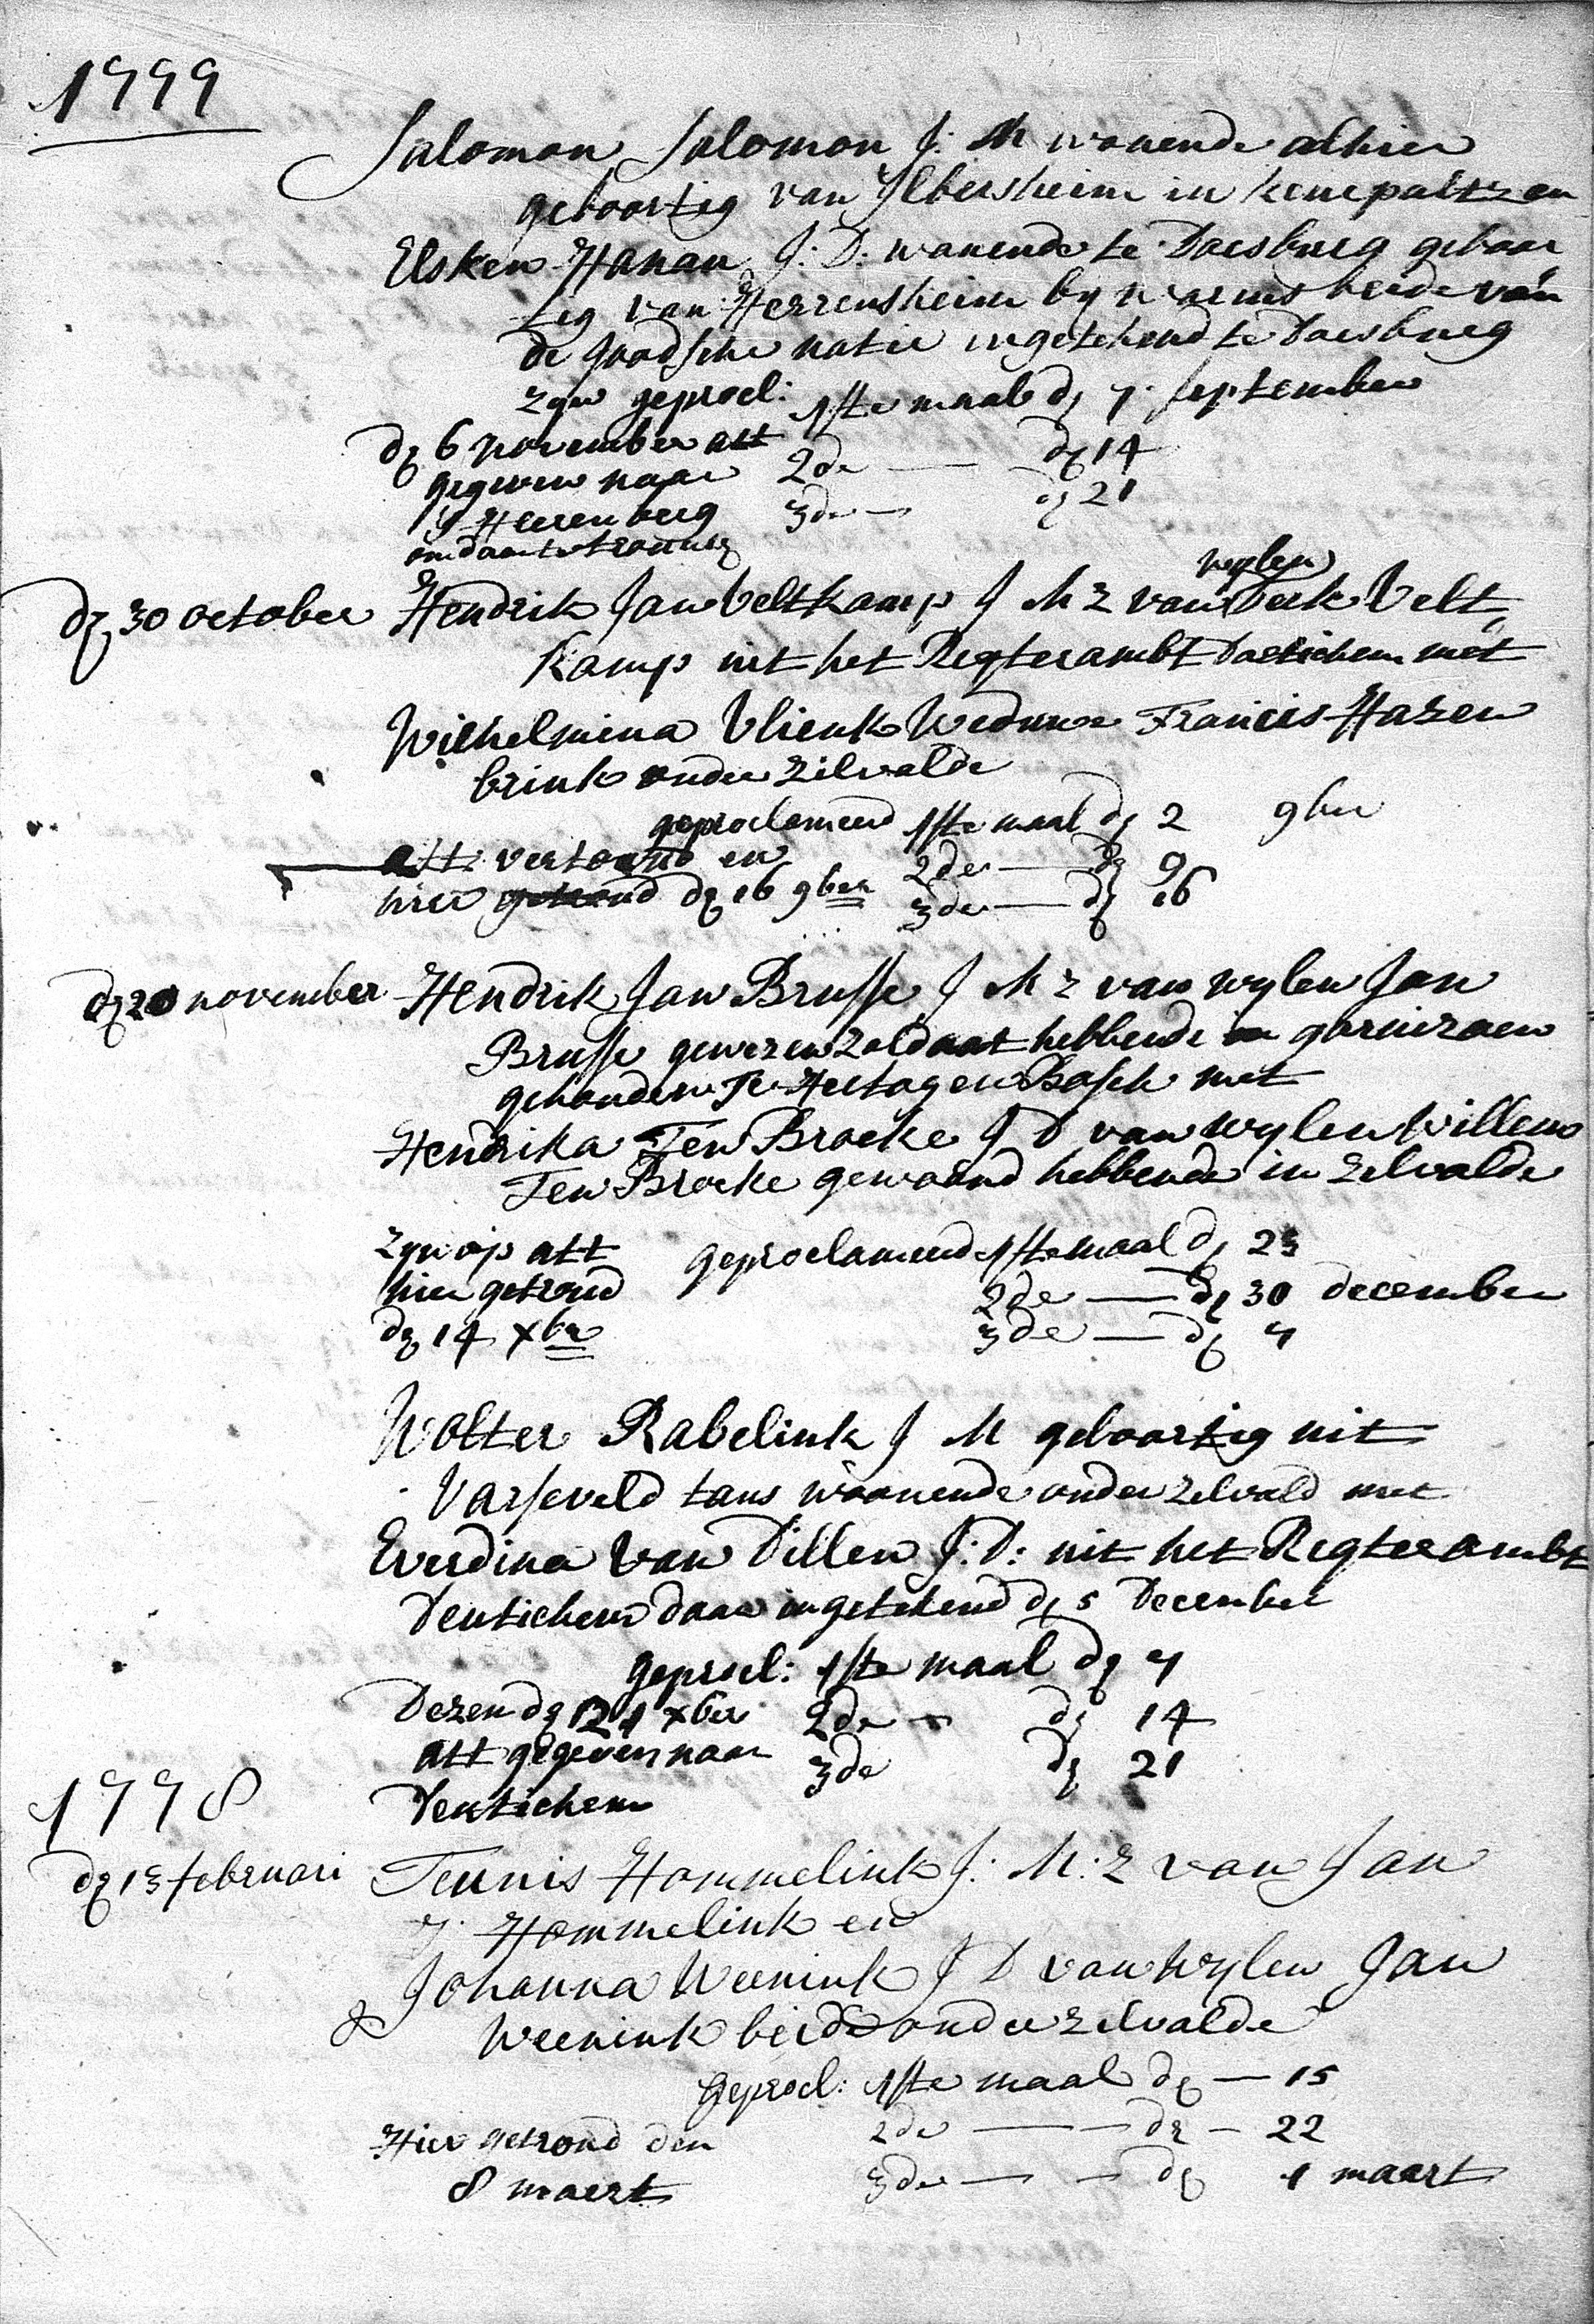 1777
Salomon Salomon J: M wonende alhier
geboortig van Ilbersheim in keurpaltz en
Elsken Hanau J: D: wonende te Doesburg geboor
tig van Herrensheim by worms beide van
de Joodsche natie ingetekend te Doesburg
zyn geprocl: 1ste maal dȝ 7 september
dȝ 6 november att 2de — dȝ 14
gegeven naar 3de — dȝ 21
s Heerenberg
om daar te trouwen
wylen
dȝ 30 october Hendrik Jan Veltkamp J M z van Derk Velt
kamp uit het Regterambt Doetichem met
Wilhelmina Vlienk Weduwe Francis Hazen
brink onder Zilvolde
geproclameerd 1ste maal dȝ 2 9ber
att: vertoond en 2de — dȝ 9
hier getroud dȝ 16 9ber 3de — dȝ 16
dȝ 20 november Hendrik Jan Brusse J M z van wylen Jan
Brusse gewezen zoldaat hebbende garnizoen
gehouden Te Hertogen Bosch met
Hendrika Ten Broeke J D van wylen Willem
Ten Broeke gewoond hebbende in Zelvolde
zyn op att geproclameerd 1ste maal dȝ 23
hier getroud 2de — dȝ 30 december
dȝ 14 xber 3de — dȝ 7
Wolter Rabelink J M geboortig uit
Varseveld tans woonende onder zelvold met
Everdina Van Dillen J: D: uit het Regterambt
Deutichem daar ingetekend dȝ 5 December
geprocl: 1ste maal dȝ 7
Dezen dȝ 21 xber 2de — dȝ 14
att gegeven naar 3de dȝ 21
Deutichem
1778
dȝ 13 februari Teunis Hommelink J: M: z van Jan
Hommelink en
Johanna Weenink J D van wylen Jan
Weenink beide onder zelvolde
geprocl: 1ste maal dȝ — 15
Hier getroud den 2de — dȝ — 22
8 maert 3de — — dȝ 1 maart